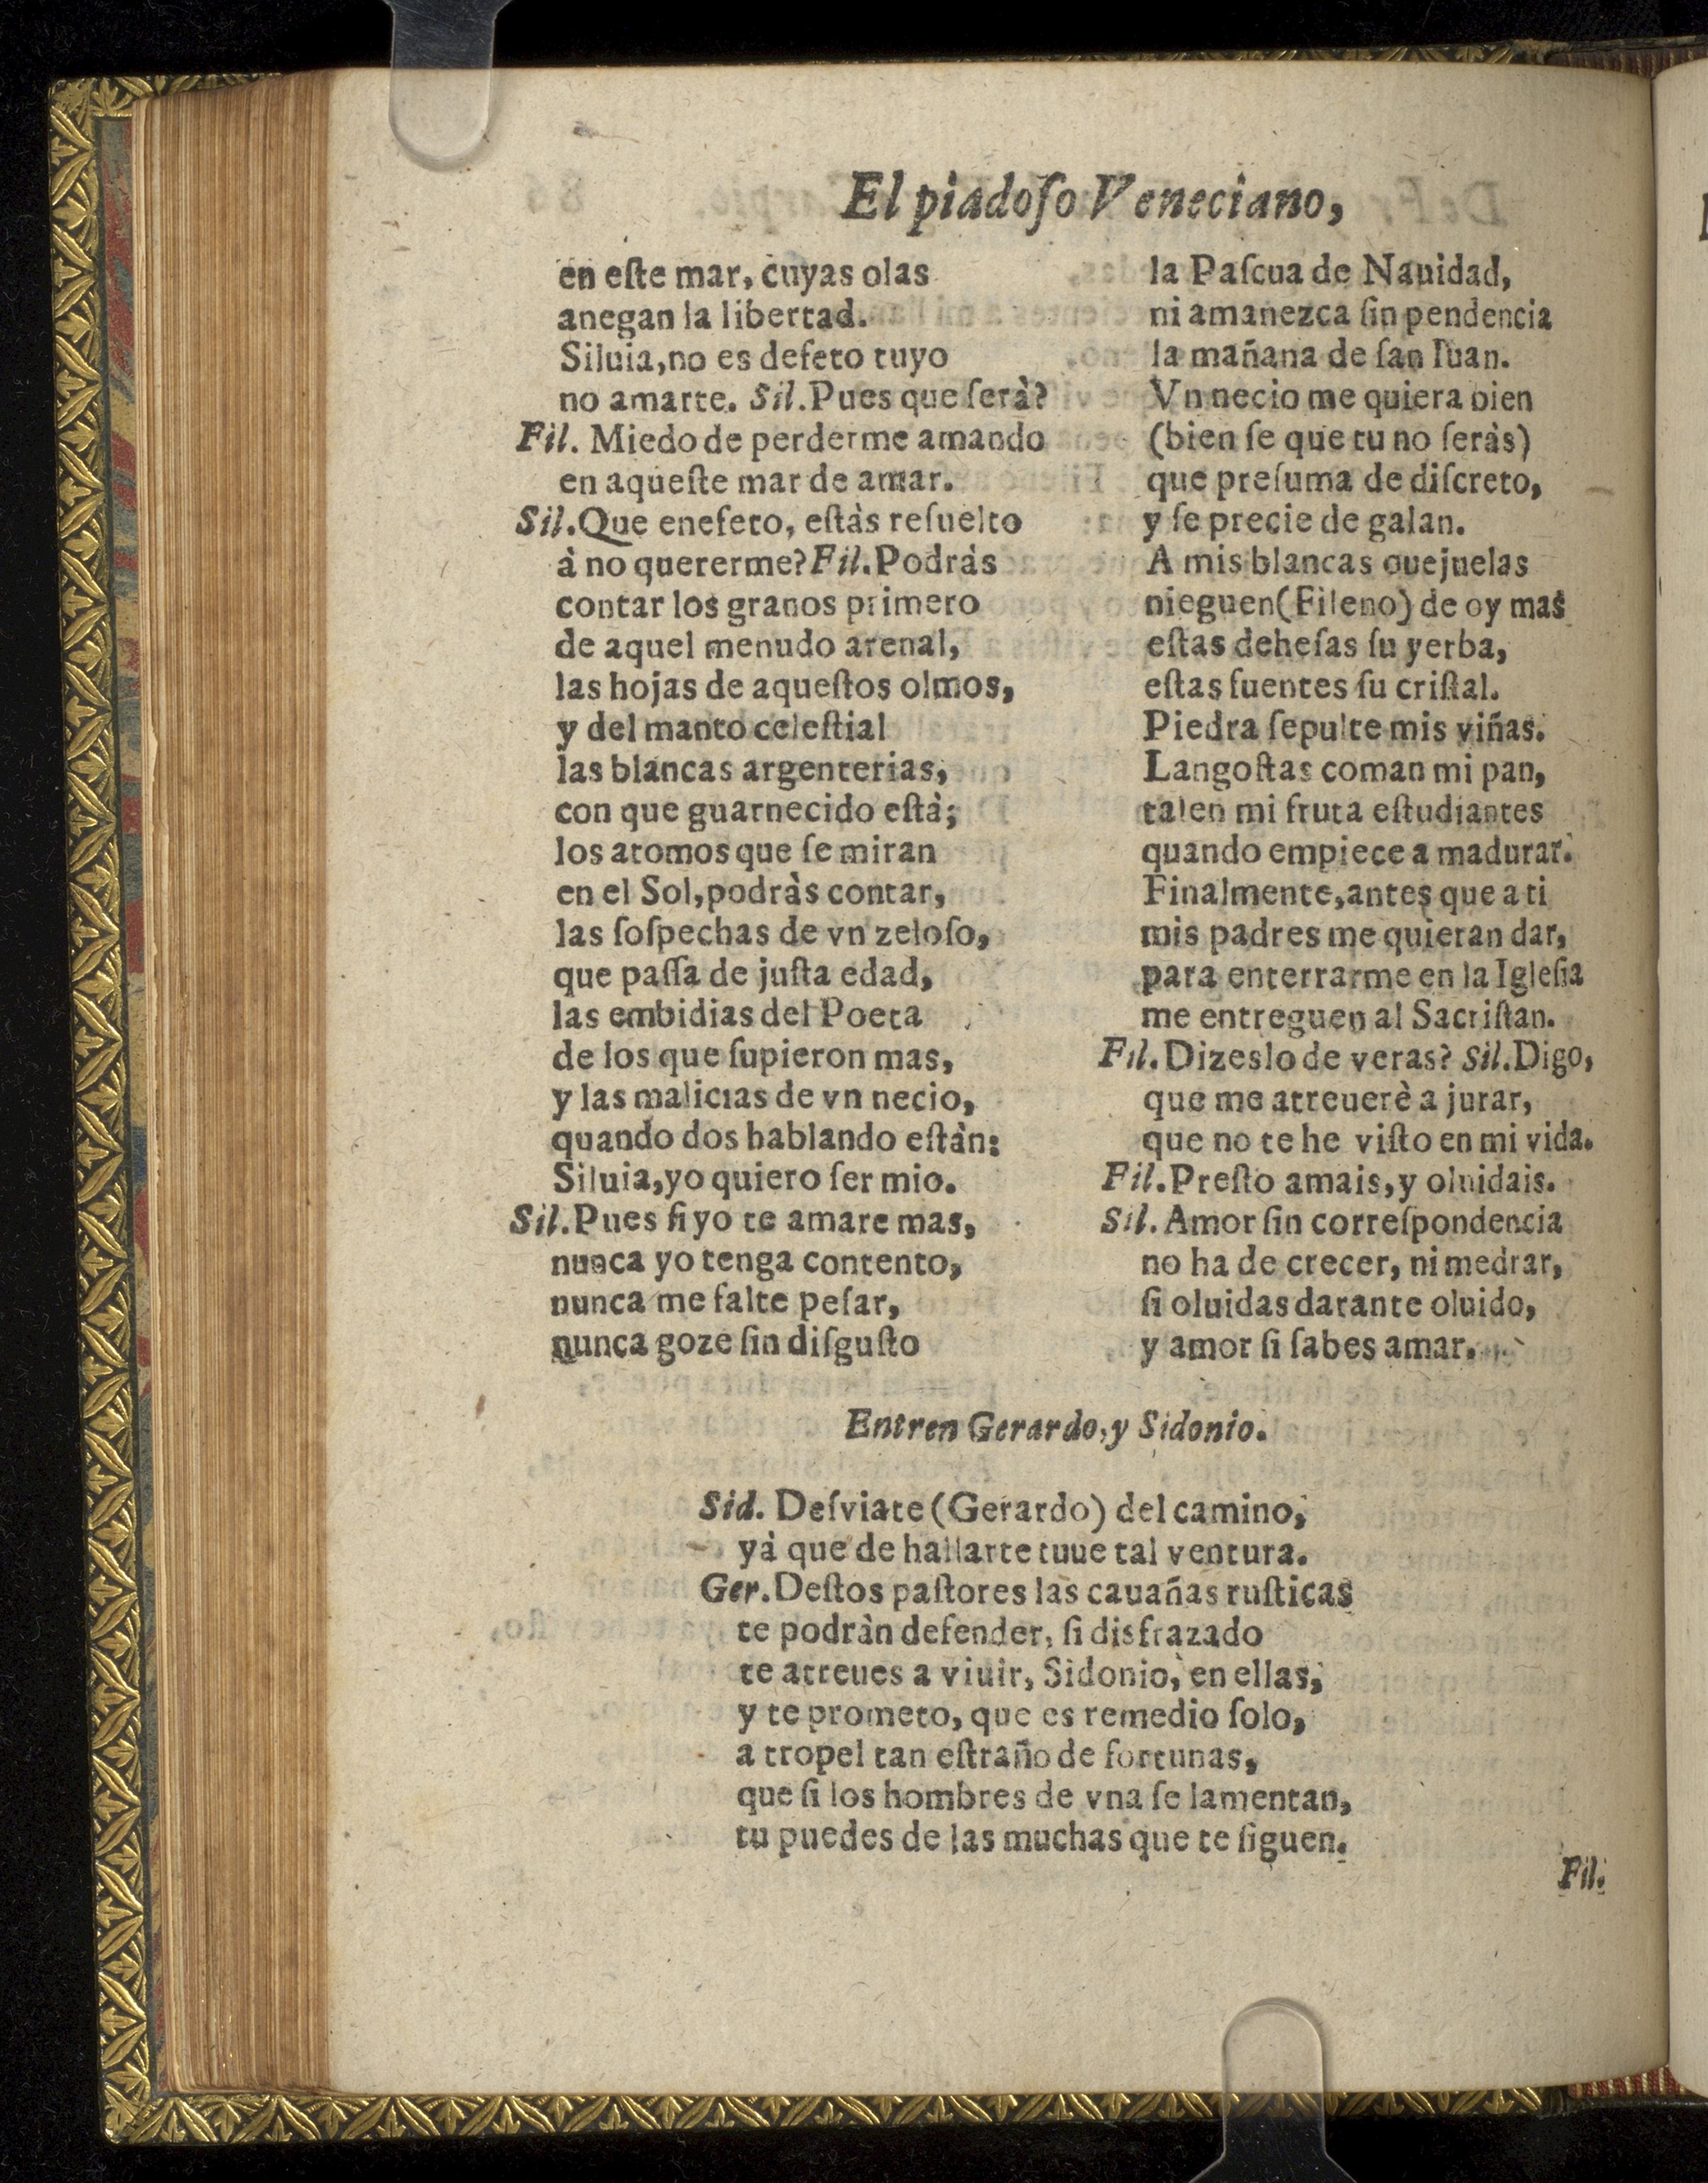 El piadoſo Veneciano,
en eſte mar, cuyas olas
anegan la libertad.
Siluia, no es defeto tuyo
no amarte. Sil. Pues que ſerà?
Fil. Miedo de perderme amando
en aqueſte mar de amar.
Sil. Que enefeto, eſtàs reſuelto
à no quererme? Fil. Podràs
contar los granos primero
de aquel menudo arenal,
las hojas de aqueſtos olmos,
y del manto celeſtial
las blancas argenterias,
con que guarnecido eſtà;
los atomos que ſe miran
en el Sol, podràs contar,
las ſoſpechas de vn zeloſo,
que paſſa de juſta edad,
las embidias del Poeta
de los que ſupieron mas,
y las malicias de vn necio,
quando dos hablando eſtàn:
Siluia, yo quiero ſer mio.
Sil. Pues ſi yo te amare mas,
nunca yo tenga contento,
nunca me falte peſar,
nunca goze ſin diſguſto
la Paſcua de Nauidad,
ni amanezca ſin pendencia
la mañana de ſan Iuan.
Vn necio me quiera bien
(bien ſe que tu no ſeràs)
que preſuma de diſcreto,
y ſe precie de galan.
A mis blancas ouejuelas
nieguen (Fileno) de oy mas
eſtas deheſas ſu yerba,
eſtas fuentes ſu criſtal.
Piedra ſepulte mis viñas.
Langoſtas coman mi pan,
talen mi fruta eſtudiantes
quando empiece a madurar.
Finalmente, antes que a ti
mis padres me quieran dar,
para enterrarme en la Igleſia
me entreguen al Sacriſtan.
Fil. Dizeslo de veras? Sil. Digo,
que me atreuerè a jurar,
que no te he viſto en mi vida.
Fil. Preſto amais, y oluidais.
Sil. Amor ſin correſpondencia
no ha de crecer, ni medrar,
ſi oluidas darante oluido,
y amor ſi ſabes amar.
Entren Gerardo, y Sidonio.
Sid. Deſviate (Gerardo) del camino,
yà que de hallarte tuue tal ventura.
Ger. Deſtos paſtores las cauañas ruſticas
te podràn defender, ſi disfrazado
te atreues a viuir, Sidonio, en ellas,
y te prometo, que es remedio ſolo,
a tropel tan eſtraño de fortunas,
que ſi los hombres de vna ſe lamentan,
tu puedes de las muchas que te ſiguen.
Fil.